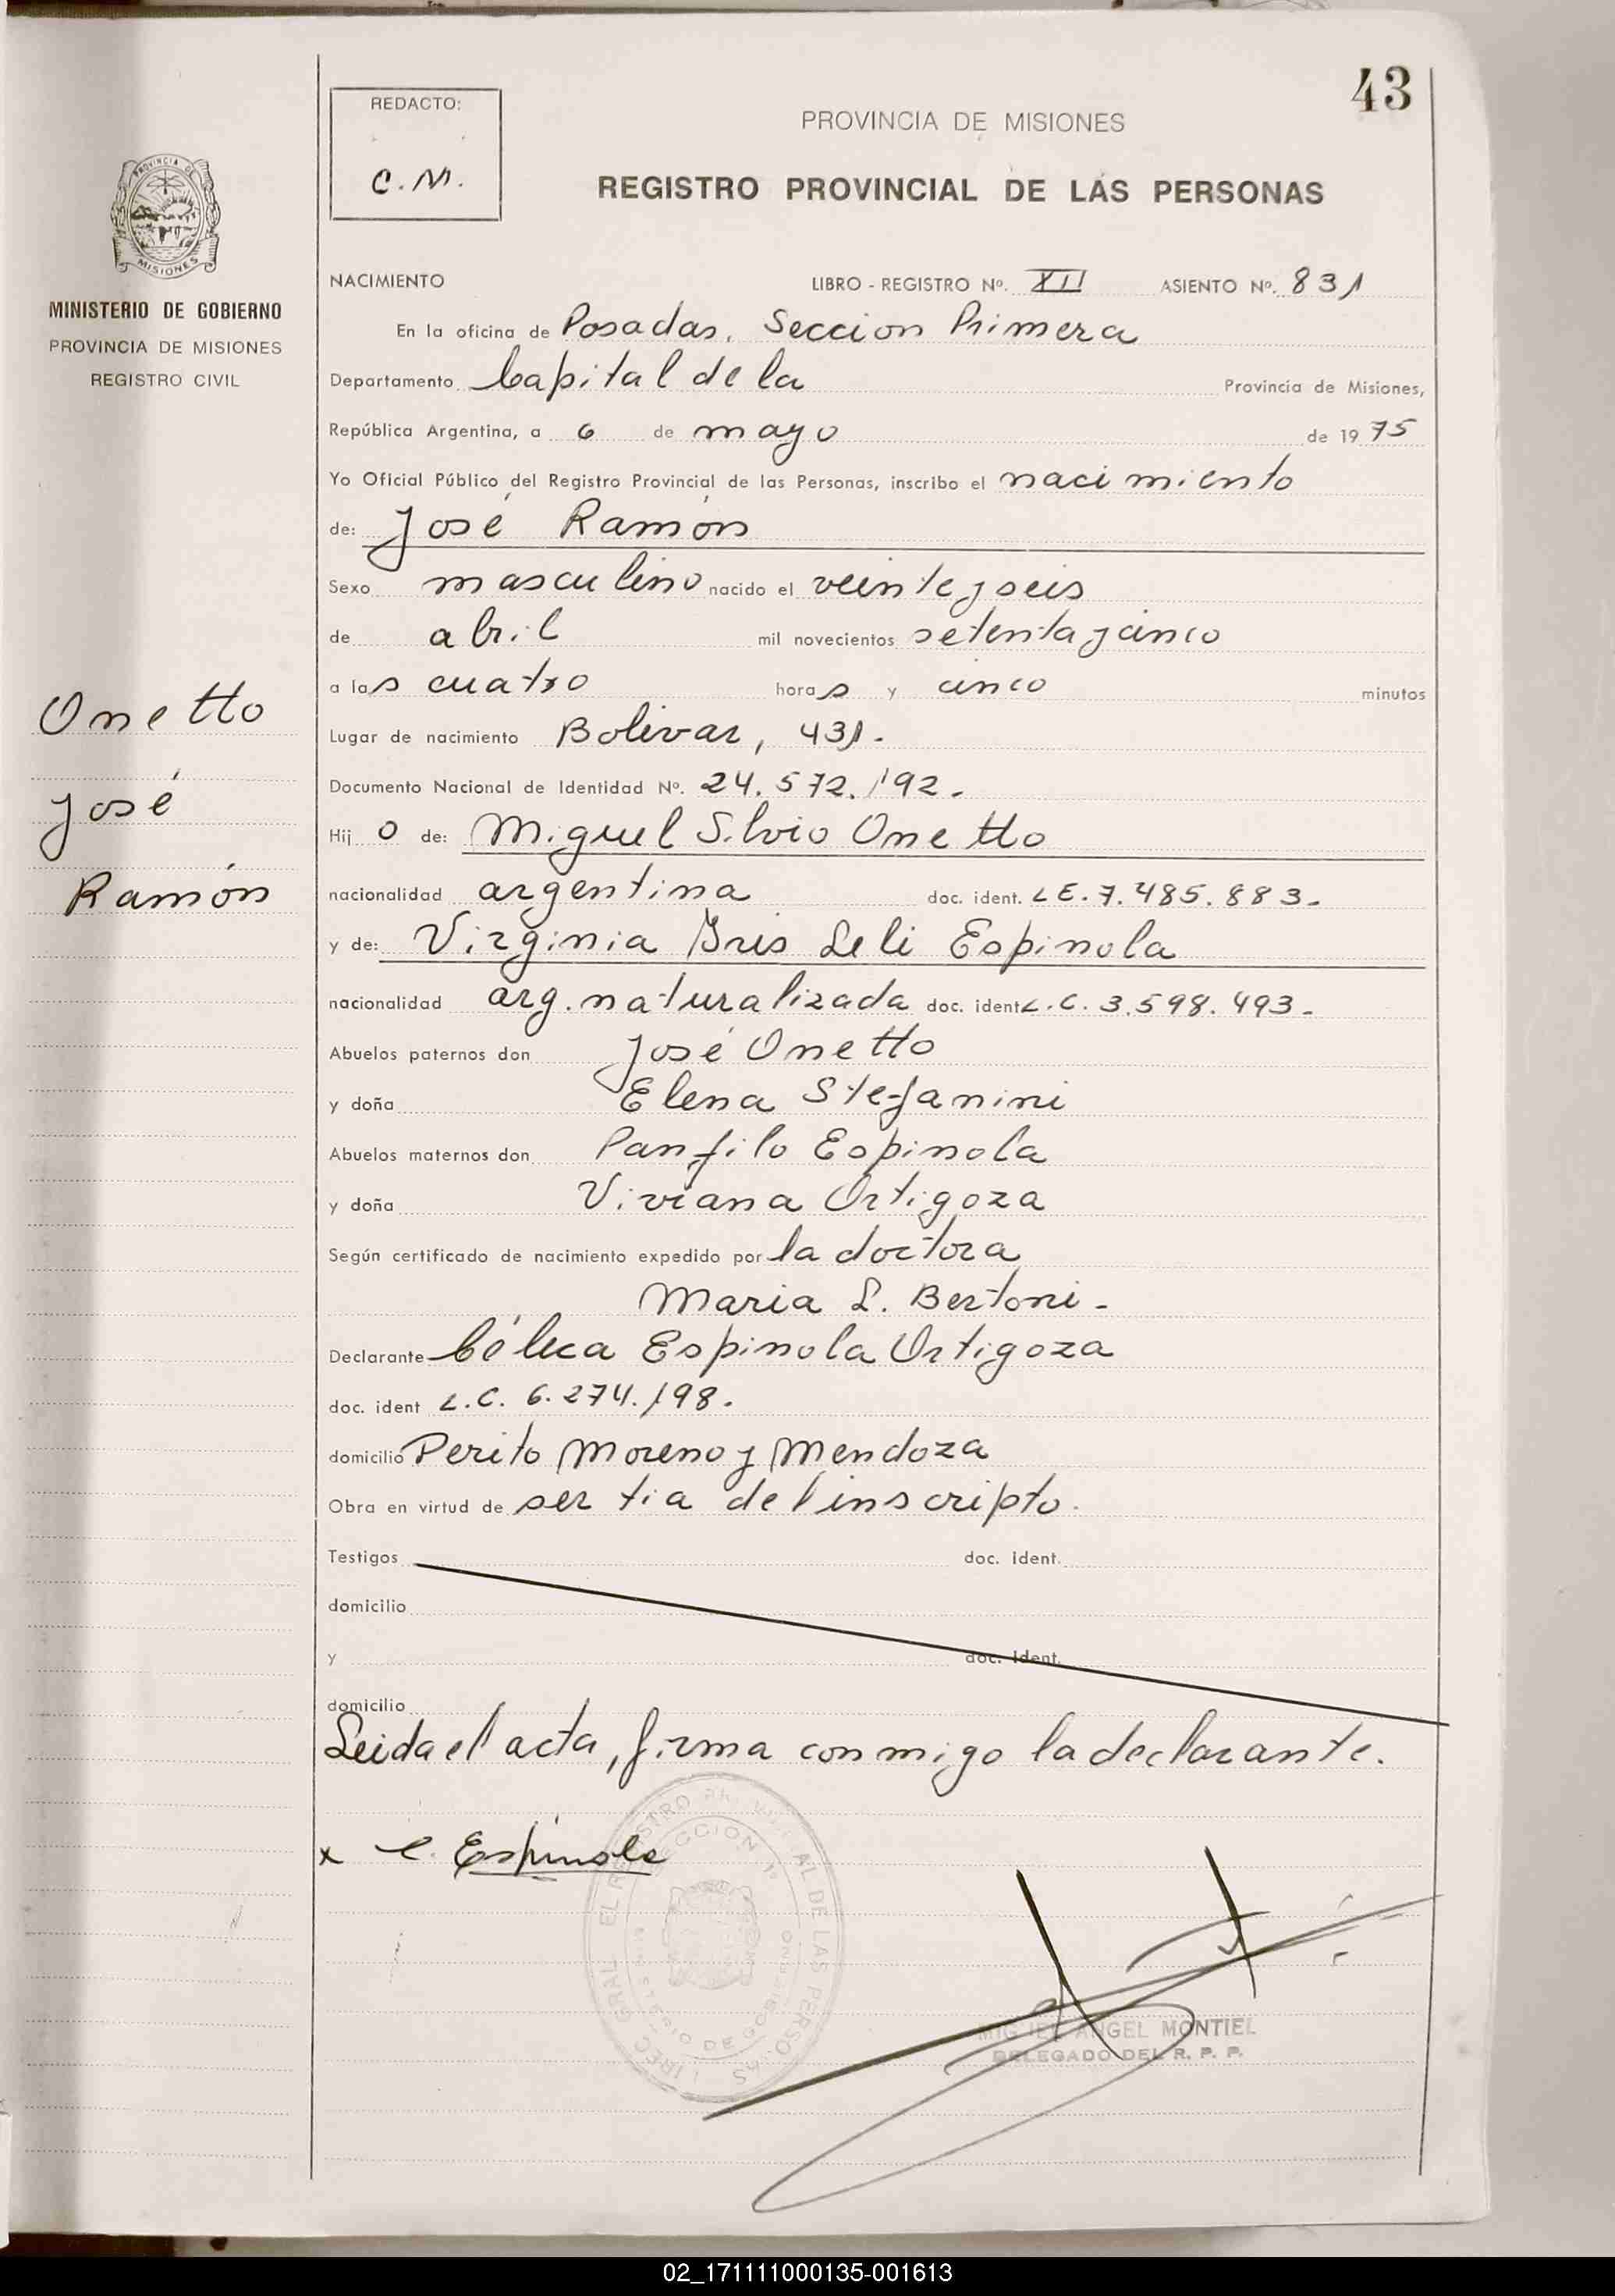 43
REDACTO:
C.M.
PROVINCIA DE MISIONES
REGISTRO PROVINCIAL DE LAS PERSONAS
PROVINCIA DE
MISIONES
MINISTERIO DE GOBIERNO
PROVINCIA DE MISIONES
REGISTRO CIVIL
NACIMIENTO LIBRO - REGISTRO Nº. XII ASIENTO Nº. 831
En la oficina de Posadas, Seccion Primera
Departamento Capital de la Provincia de Misiones,
República Argentina, a 6 de mayo de 1975
Yo Oficial Público del Registro Provincial de las Personas, inscribo el nacimiento
de: José Ramón
Sexo masculino nacido el veinte y seis
de abril mil novecientos setenta y cinco
a las cuatro horas y cinco minutos
Lugar de nacimiento Bolivar, 431.
Documento Nacional de Identidad Nº. 24.572.192.
Hijo de: Miguel Silvio Onetto
nacionalidad argentina doc. ident. LE.7.485.883.
y de: Virginia Iris Leli Espinola
nacionalidad arg. naturalizada doc. ident L.C. 3.598.493.
Abuelos paternos don José Onetto
y doña Elena Stefanini
Abuelos maternos don Panfilo Espinola
y doña Viviana Ortigoza
Según certificado de nacimiento expedido por la doctora
Maria L. Bertoni.
Declarante Célica Espinola Ortigoza
doc. ident L.C. 6.274.198.
domicilio Perito Moreno y Mendoza
Obra en virtud de ser tia del inscripto.
Testigos doc. ident.
domicilio
y doc. ident.
domicilio
Leida el acta, firma conmigo la declarante.
x C. Espinola
Onetto
José
Ramón
MIGUEL ANGEL MONTIEL
DELEGADO DEL R. P. P.
02_171111000135-001613